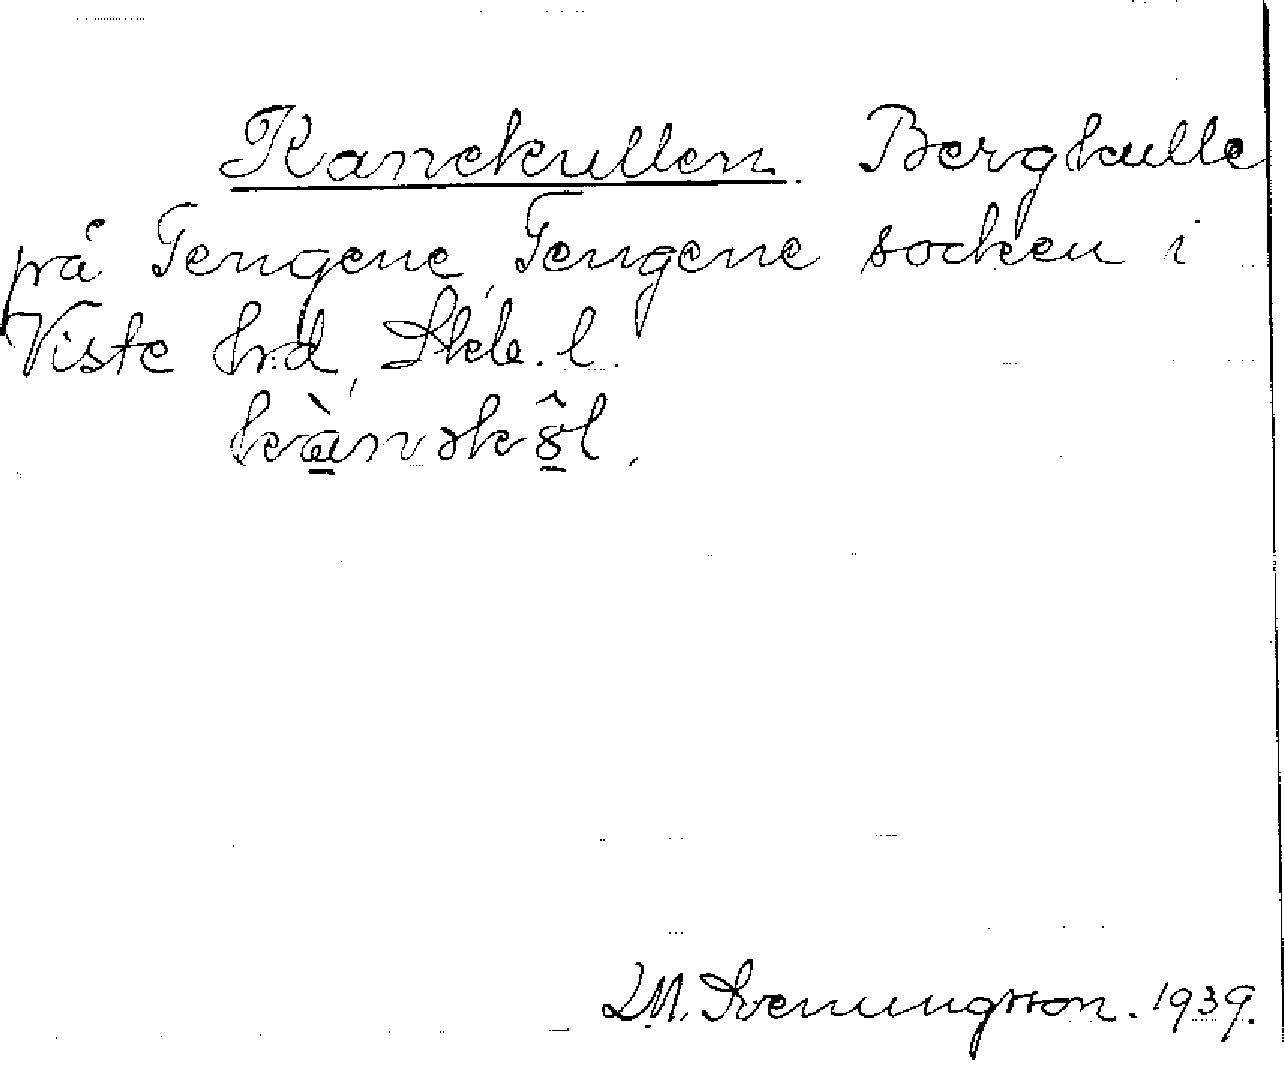 Kanekullen. Bergkulle
på Tengene, Tengene socken i
Viste hrd, Skb. l.
kànəkôl.
L M. Svenungsson. 1939.